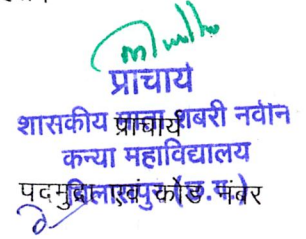 प्राचार्य
शासकीय माता शबरी नवीन
प्राचार्य
कन्या महाविद्यालय
बिलासपुर (छ.ग.)
पदमुद्रा एवं कोड नंबर